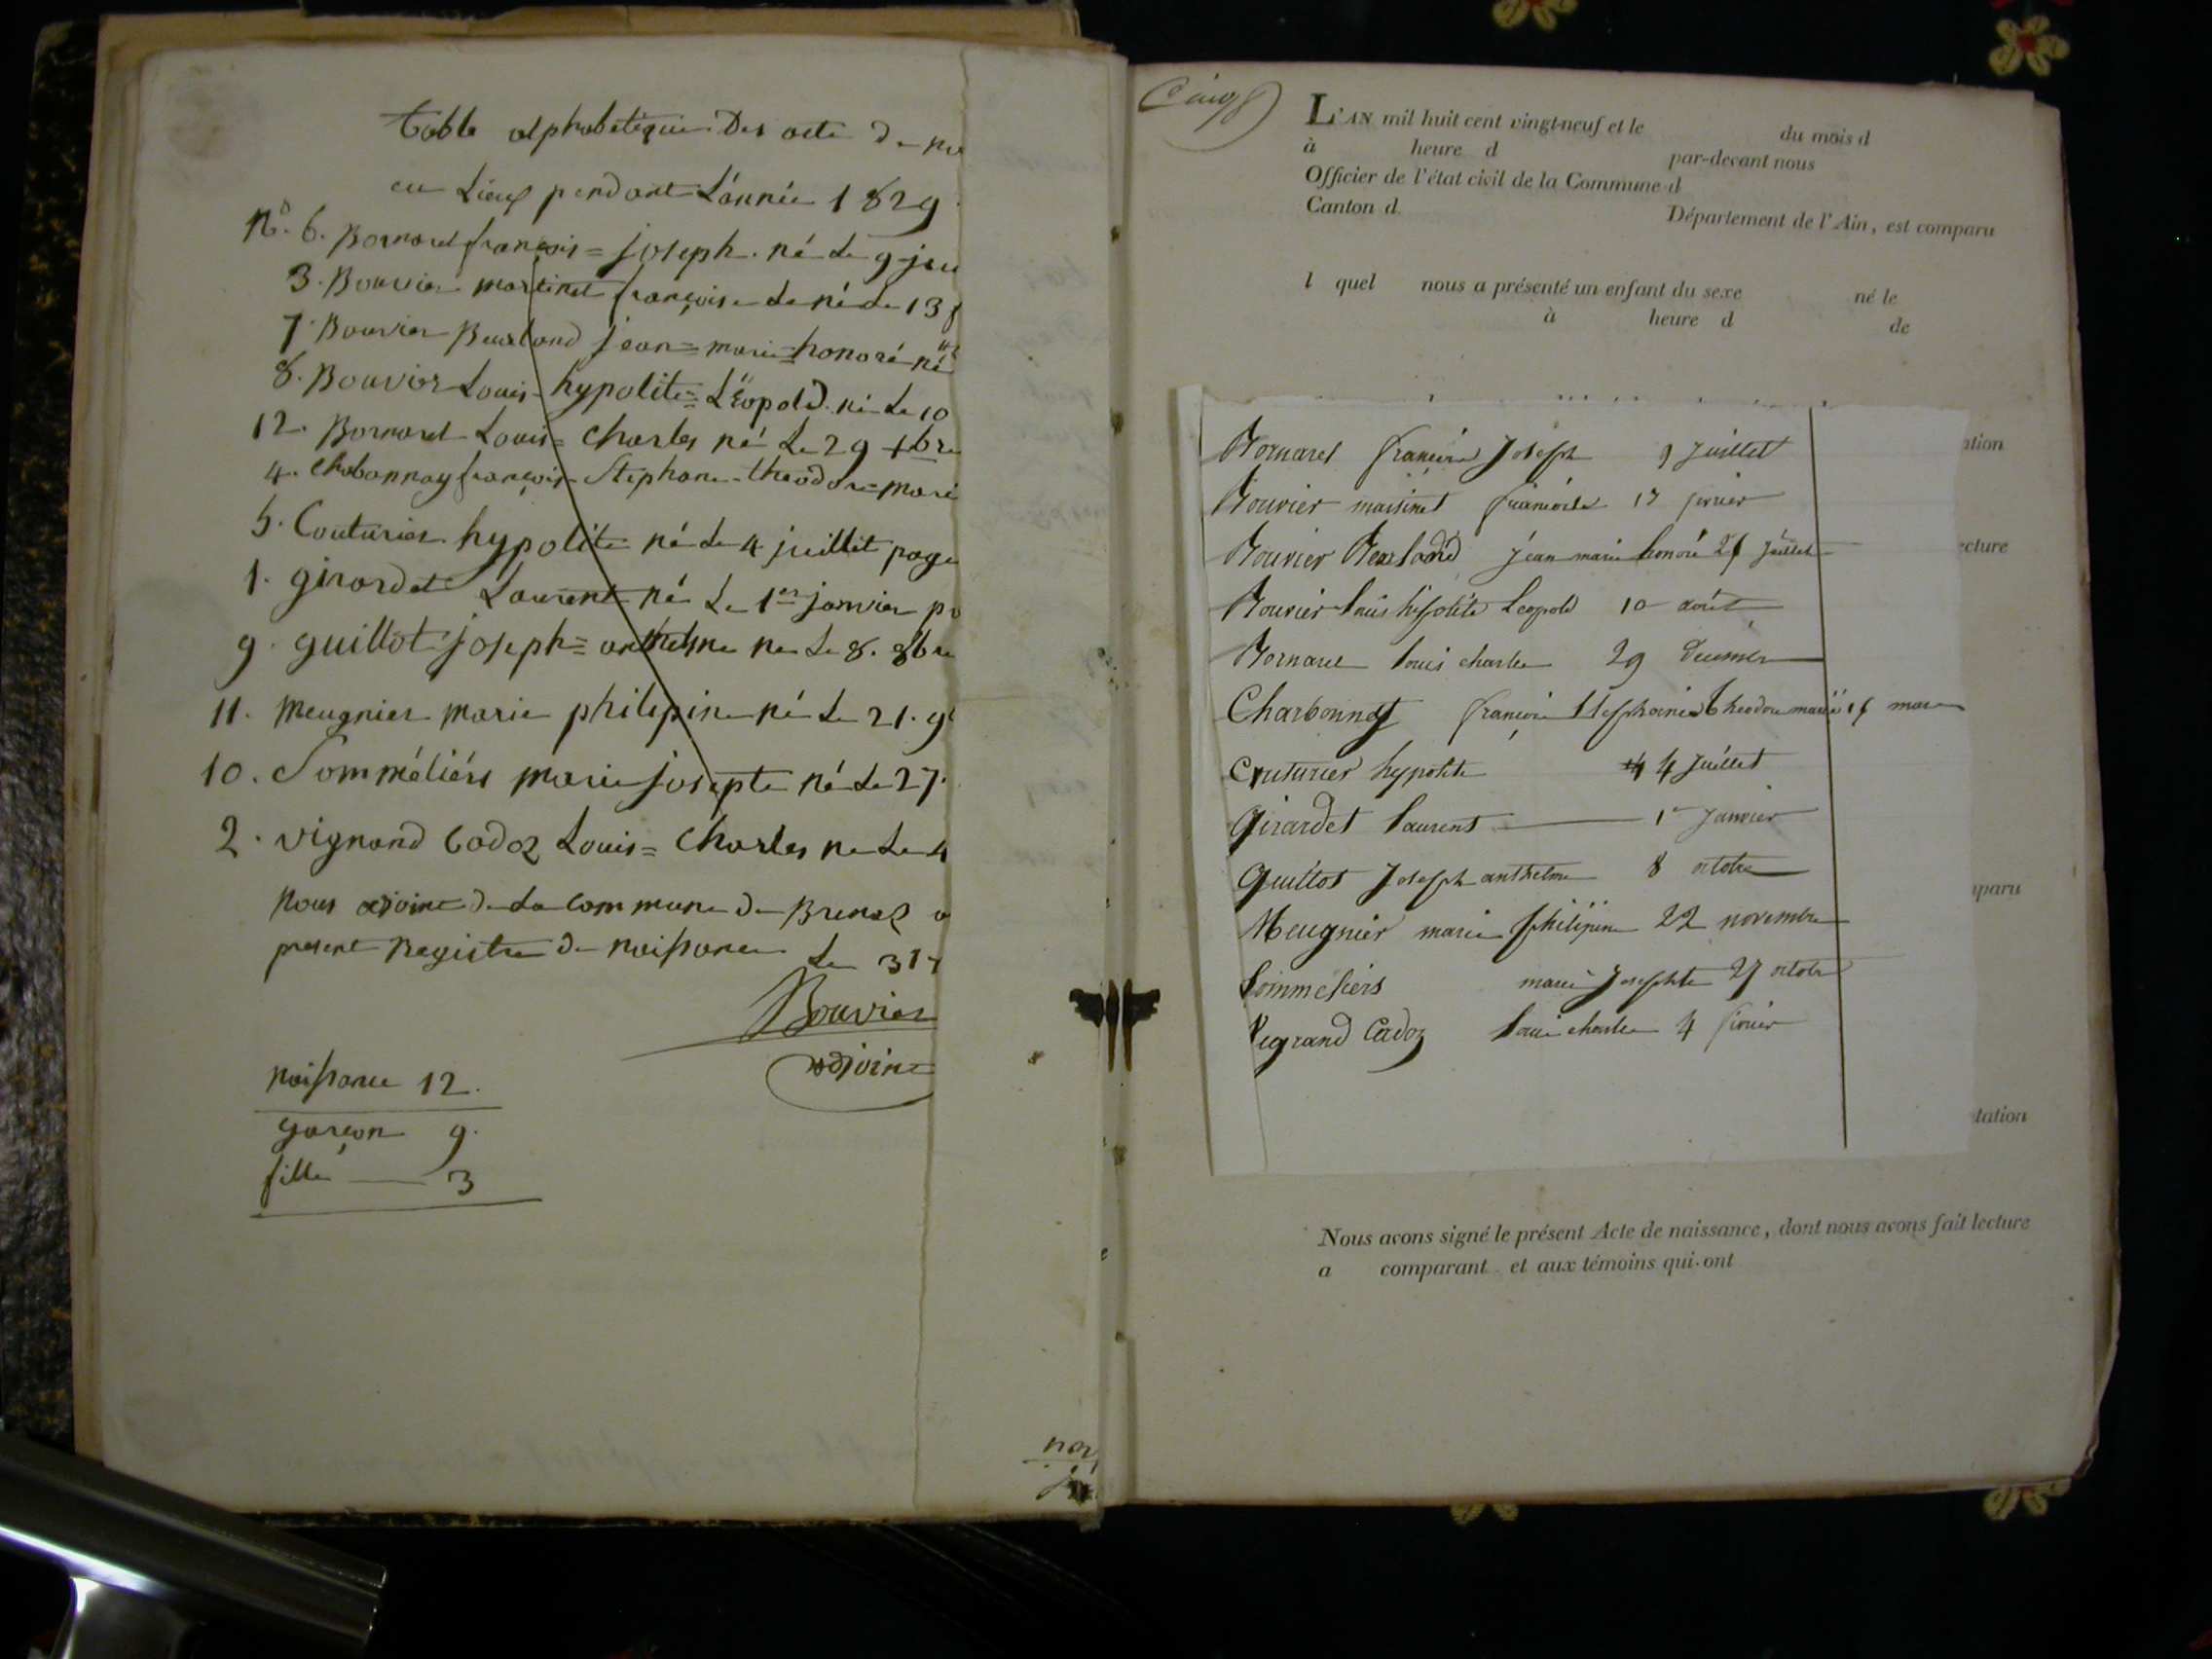 table alphabetique Des acte de
eu Lieux pendant L'année 1829
No. 6. Bornarel françois = joseph. né Le 9
3. Bouvier martinet françoise Le né Le 13
7. Bouvier Beauland jean = marie = honoré né
8. Bouvier Louis = hypolite = Léopold. né Le 10
12. Bornarel Louis = Charles né Le 29 xbre
4. Chabonnay françois - Stephane - theodore = marie
5. Couturier hypolite né Le 4 juillet page
1. girardet Laurent né Le 1er janvier
9. guillot joseph = anthelme né Le 8. 8bre
11. Meugnier Marie philipine né Le 21.
10. Somméliérs marie josepte né Le 27.
2. vignand Cadoz Louis = Charles né Le 4
Nous adjoint de La Commune de Brenaz
present Registre de naissance Le 31
Bouvier
adjoint
naissance 12.
garçon 9.
fille 3
L'AN mil huit cent vingt-neuf et le du mois d
à heure d par-devant nous
Officier de l'état civil de la Commune d
Canton d Département de l'Ain, est comparu
l quel nous a présenté un enfant du sexe né le
à heure d de
Bornarel françois Joseph 9 Juillet
Bouvier françoise
Bouvier Beauland Jean marie honoré Juillet
Bouvier Louis hipolite Leopold 10 août
Bornarel Louis charles 29
Charbonnay françois theodore marie mars
Couturier hypolite 4 Juillet
Girardet Laurent 1er Janvier
Guillot Joseph anthelme 8 octobre
Meugnier marie philipine 22 novembre
Sommeliers marie Josephte 27 octobre
Vegrand Cadoz Louis charles 4
ation
ecture
paru
tation
Nous avons signé le présent Acte de naissance, dont nous avons fait lecture
a comparant et aux témoins qui ont